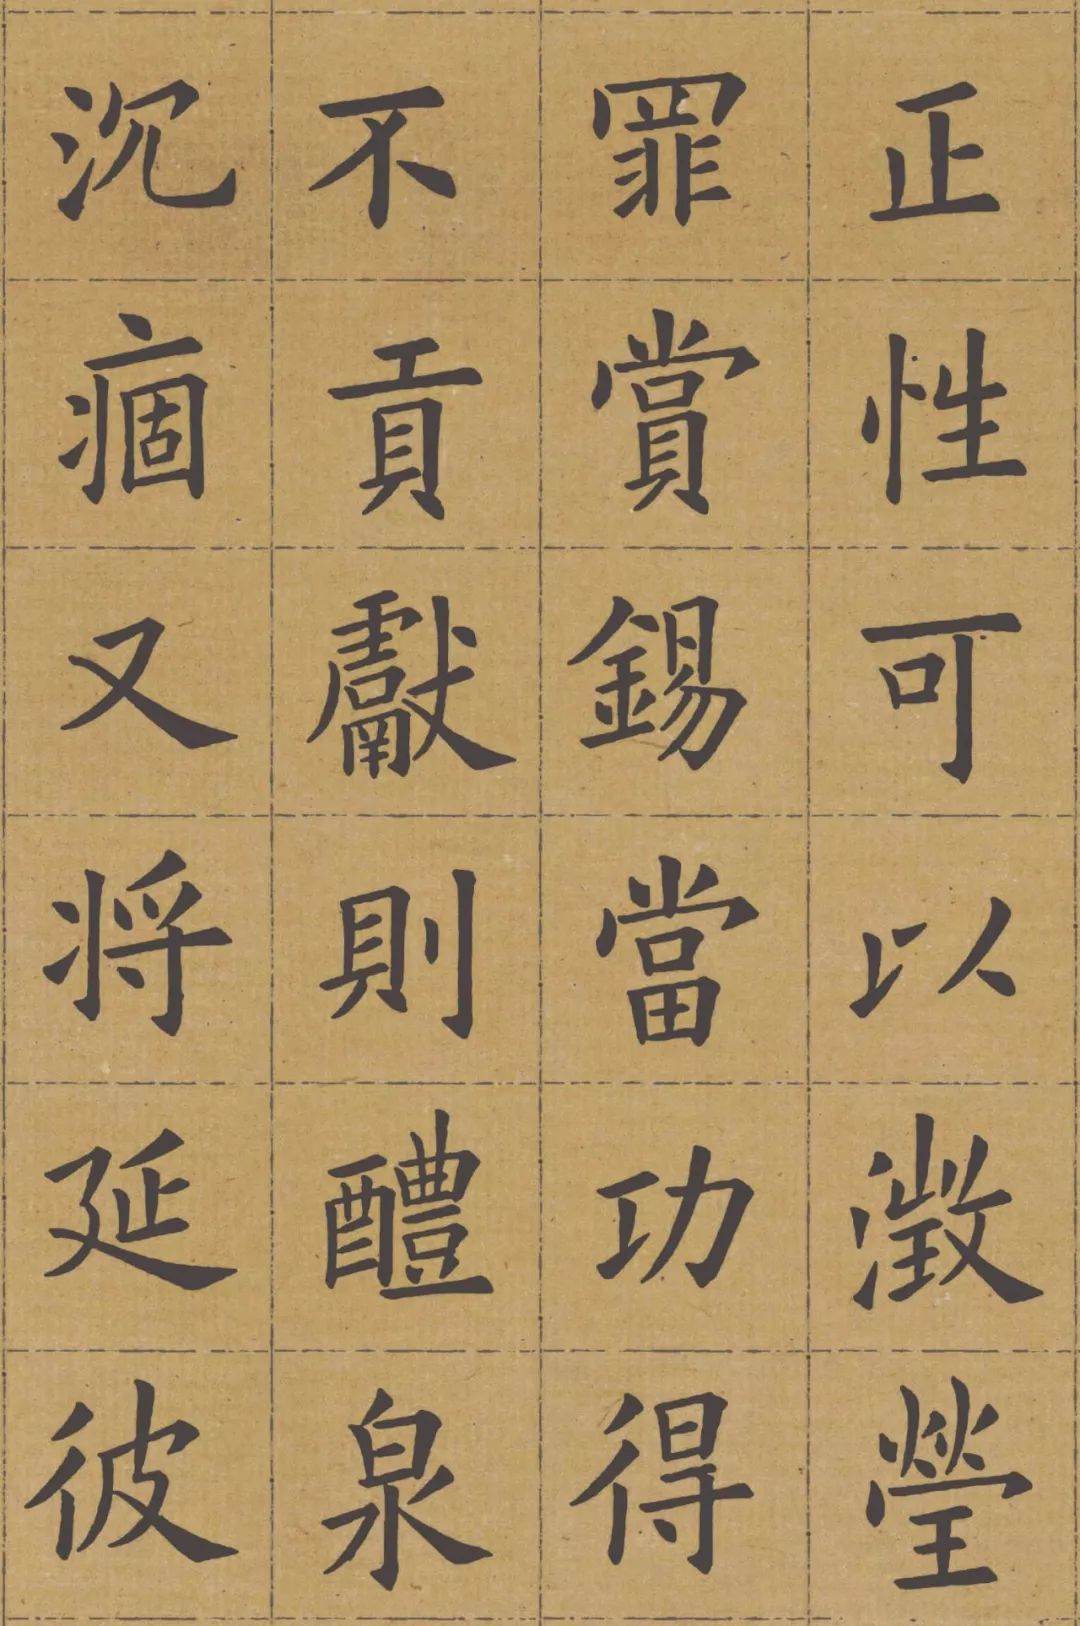 正性可以澂瑩
罪賞錫當功得
不貢獻則醴泉
沉痼又将延彼